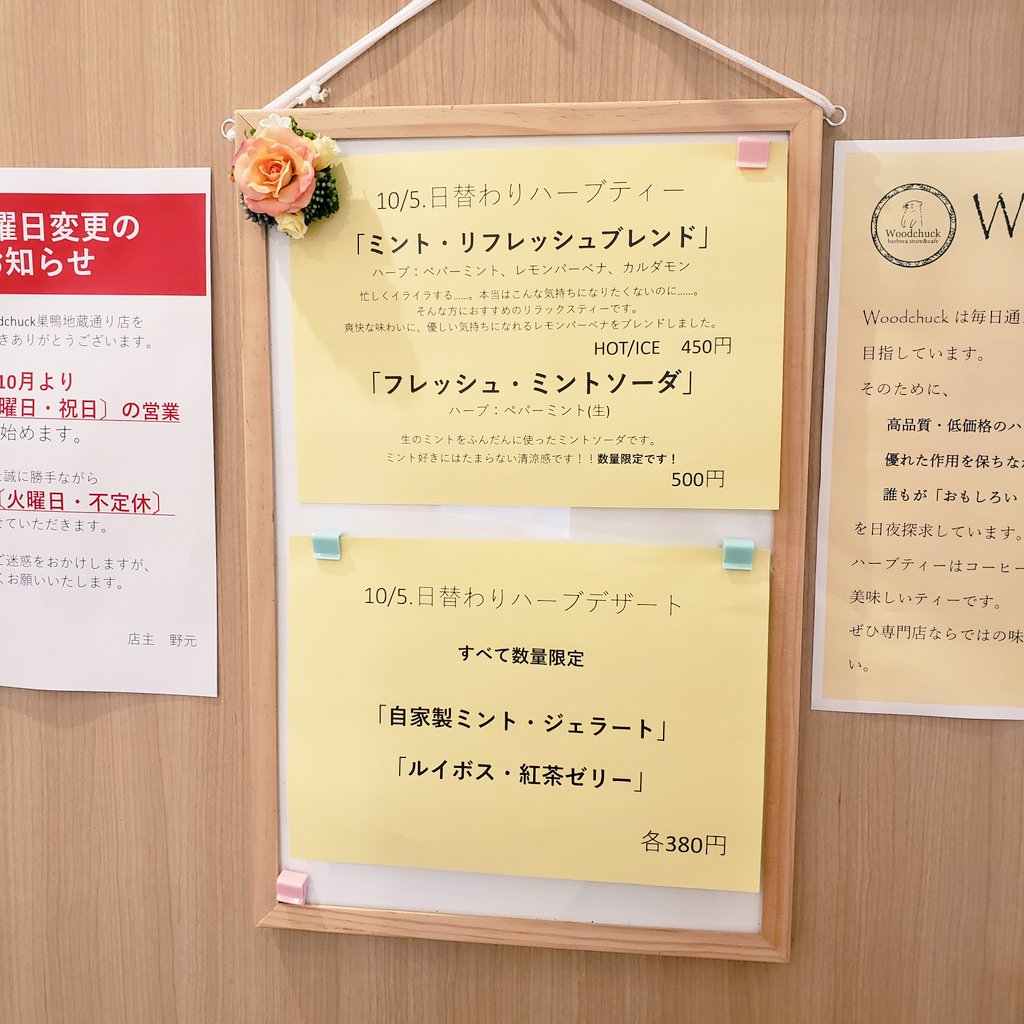 曜日変更の
お知らせ
dchuck巣鴨地蔵通り店を
きありがとうございます。
10月より
曜日・祝日〕の営業
始めます。
誠に勝手ながら
〔火曜日・不定休〕
せていただきます。
ご迷惑をおかけしますが、
くお願いいたします。
店主 野元
10/5.日替わりハーブティー
「ミント・リフレッシュブレンド」
ハーブ：ペパーミント、レモンバーベナ、カルダモン
忙しくイライラする……。本当はこんな気持ちになりたくないのに……。
そんな方におすすめのリラックスティーです。
爽快な味わいに、優しい気持ちになれるレモンバーベナをブレンドしました。
HOT/ICE 450円
「フレッシュ・ミントソーダ」
ハーブ：ペパーミント(生)
生のミントをふんだんに使ったミントソーダです。
ミント好きにはたまらない清涼感です！！数量限定です！
500円
10/5.日替わりハーブデザート
すべて数量限定
「自家製ミント・ジェラート」
「ルイボス・紅茶ゼリー」
各380円
Woodchuck
herbtea store&cafe
W
Woodchuck は毎日通
目指しています。
そのために、
高品質・低価格のハ
優れた作用を保ちな
誰もが「おもしろい
を日夜探求しています。
ハーブティーはコーヒー
美味しいティーです。
ぜひ専門店ならではの味
い。